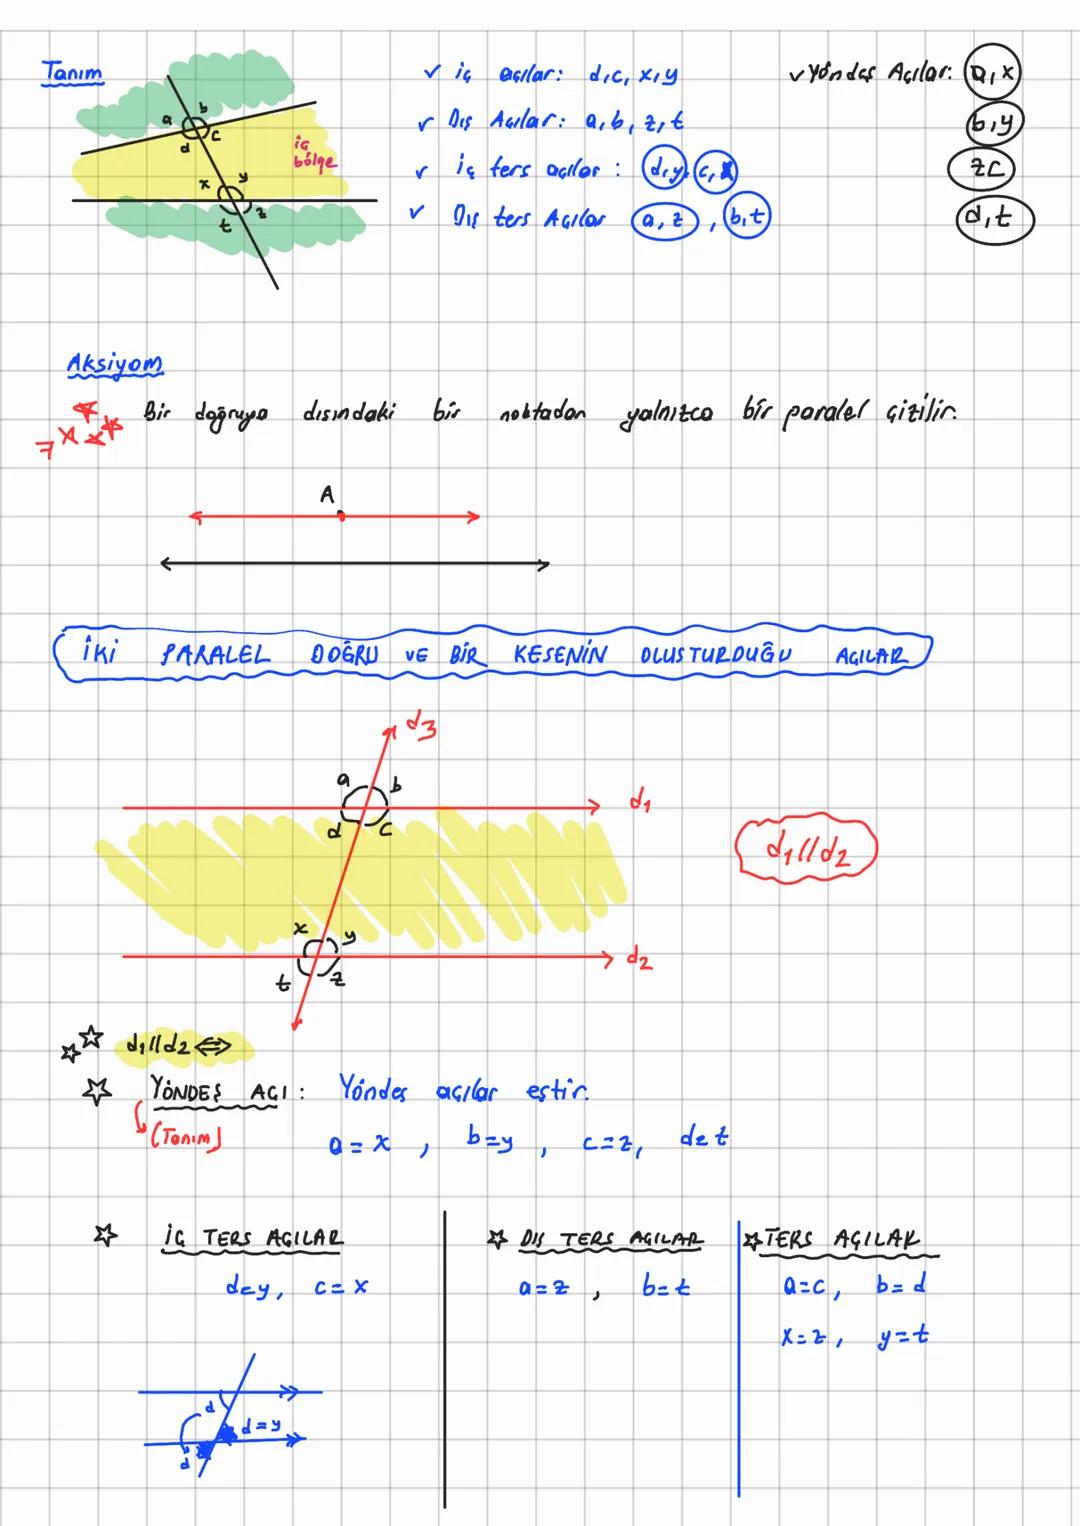 Tanım
b
a
c
d
iç bölge
x
y
z
t
✓ iç açılar: d,c, x,y
✓ Dış Açılar: a,b, z,t
✓ iç ters açılar : d,y, c,x
✓ Dış ters Açılar a,z , b,t
✓ Yöndeş Açılar: a,x
b,y
zc
d,t
Aksiyom
Bir doğruya dışındaki bir noktadan yalnızca bir paralel çizilir.
A
İKİ PARALEL DOĞRU VE BİR KESENİN OLUŞTURDUĞU AÇILAR
d3
a b
d1
d c
d1//d2
x y
d2
t z
d1//d2 ⟺
YÖNDEŞ AÇI : Yöndeş açılar eştir.
(Tanım)
a = x , b=y , c=z, d=t
İÇ TERS AÇILAR
d=y, c=x
d
d=y
d
DIŞ TERS AÇILAR
a=z , b=t
TERS AÇILAR
a=c, b=d
x=z, y=t